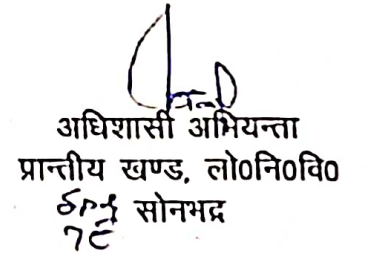 अधिशासी अभियन्ता
प्रान्तीय खण्ड, लो0नि0वि0
सोनभद्र